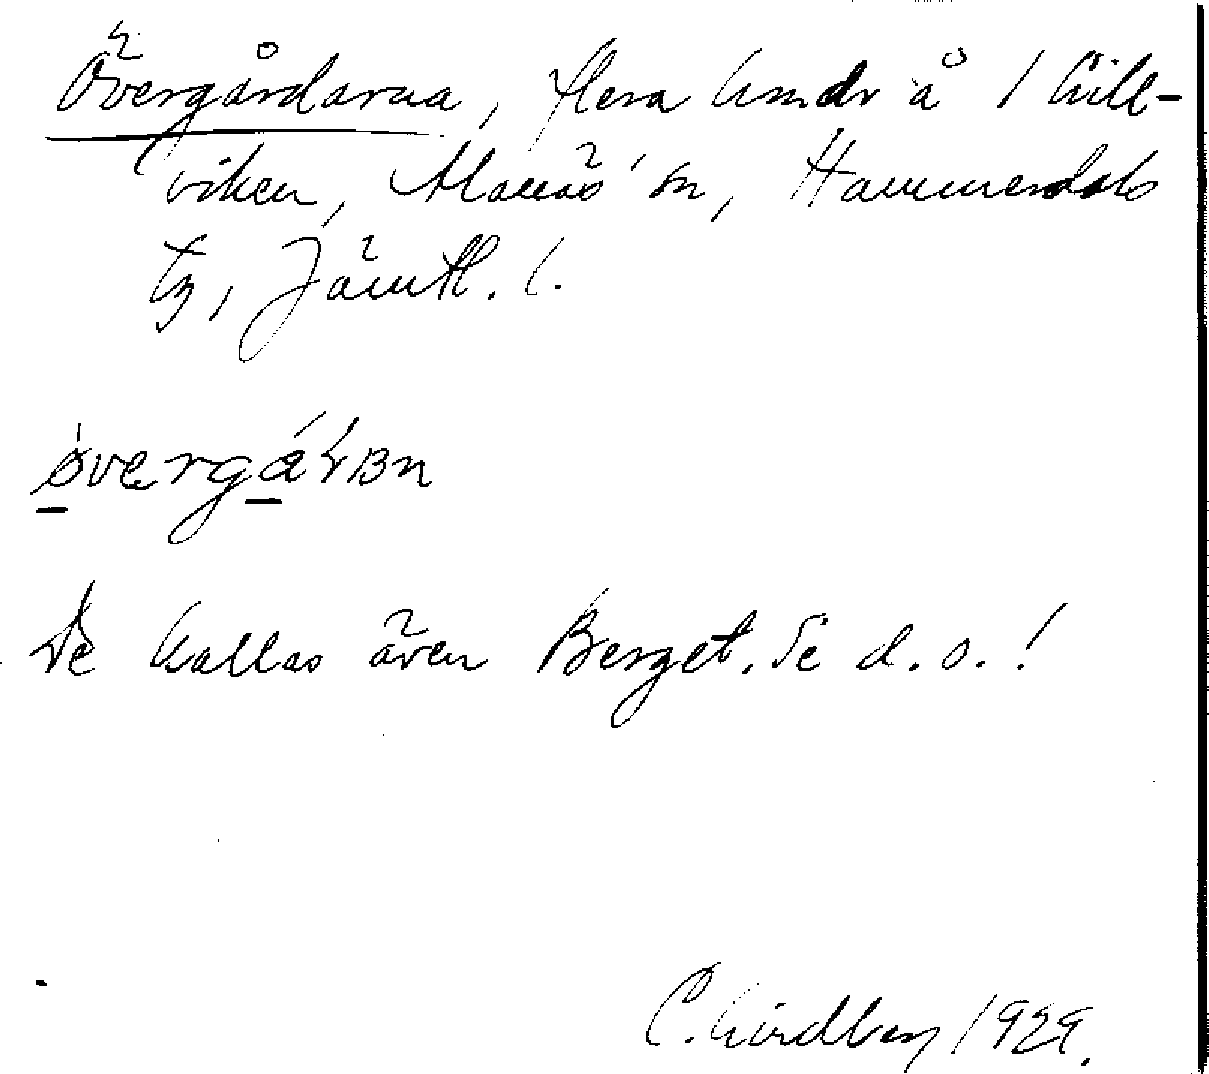 Övergårdarna, flera hmdr å 1 Lill-
viken, Alanäs sn, Hammerdals
tg, Jämtl. l.
De kallas även Berget. Se d.o.!
C. Lindberg 1929.